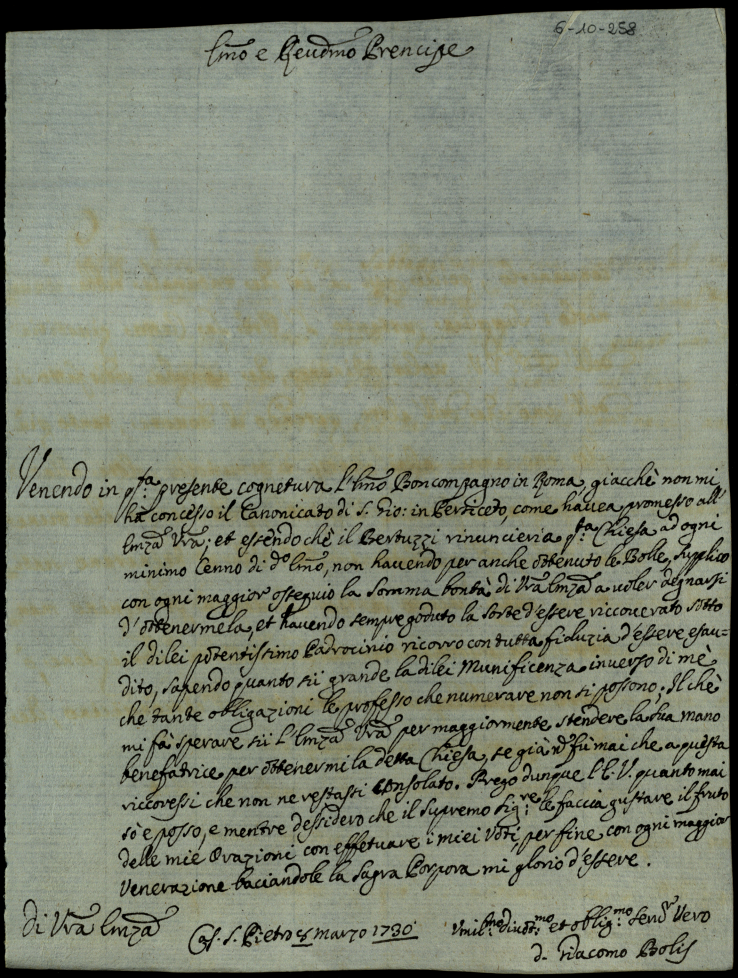 6-10-258
Emõ e Reudmõ Prencipe
Venendo in q̃ta presente cognetura l'Emõ Boncompagno in Roma, giacchè non mi
hà concesso il Canonicato di S. Gio: in Persiceto, come hauea promesso all'
Emzã Vrã; et essendo chè il Bertuzzi rinuncieria q̃ta Chiesa ad ogni
minimo Cenno di do Emõ, non hauendo per anche ottenuto le Bolle, supplico
con ogni maggior ossequio la somma bontà di Vrã Emzã a uoler degnarsi
d'ottenermela, et hauendo sempre goduto la sorte d'essere riccouerato sotto
il dilei potentissimo Padrocinio ricorro con tutta fiduzia d'essere esau=
dito, sapendo quanto sii grande la dilei Munificenza inuerso di mè
che tante obligazioni le professo che numerare non si possono; Il chè
mi fà sperare sii l'Emzã Vrã per maggiormente stendere la sua mano
benefatrice per ottenermi la detta Chiesa, se già nõ fù mai che a questa
riccoressi che non ne restassi consolato. Prego dunque l'E. V. quanto mai
sò e posso, e mentre dessidero che il supremo Sig.re le faccia gustare il fruto
delle mie Orazioni con effetuare i miei Voti, per fine con ogni maggior
Venerazione baciandole la Sagra Porpora mi glorio d'essere.
Di Vrã Emzã
Cas. S. Pietro 5 marzo 1730
Vmil.mo Diuot.mo et oblig.mo Seru.r Vero
d. Giacomo Bolis